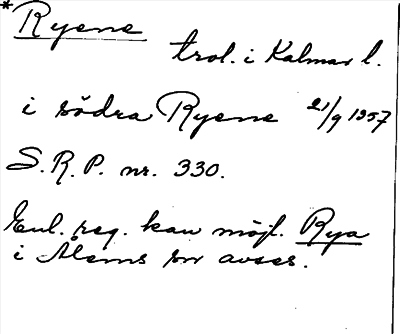 * Ryene
trol. i Kalmar l.
i södra Ryene 21/9 1357
S.R.P. nr. 330.
Enl. reg. kan möjl. Rya
i Ålems sn avses.